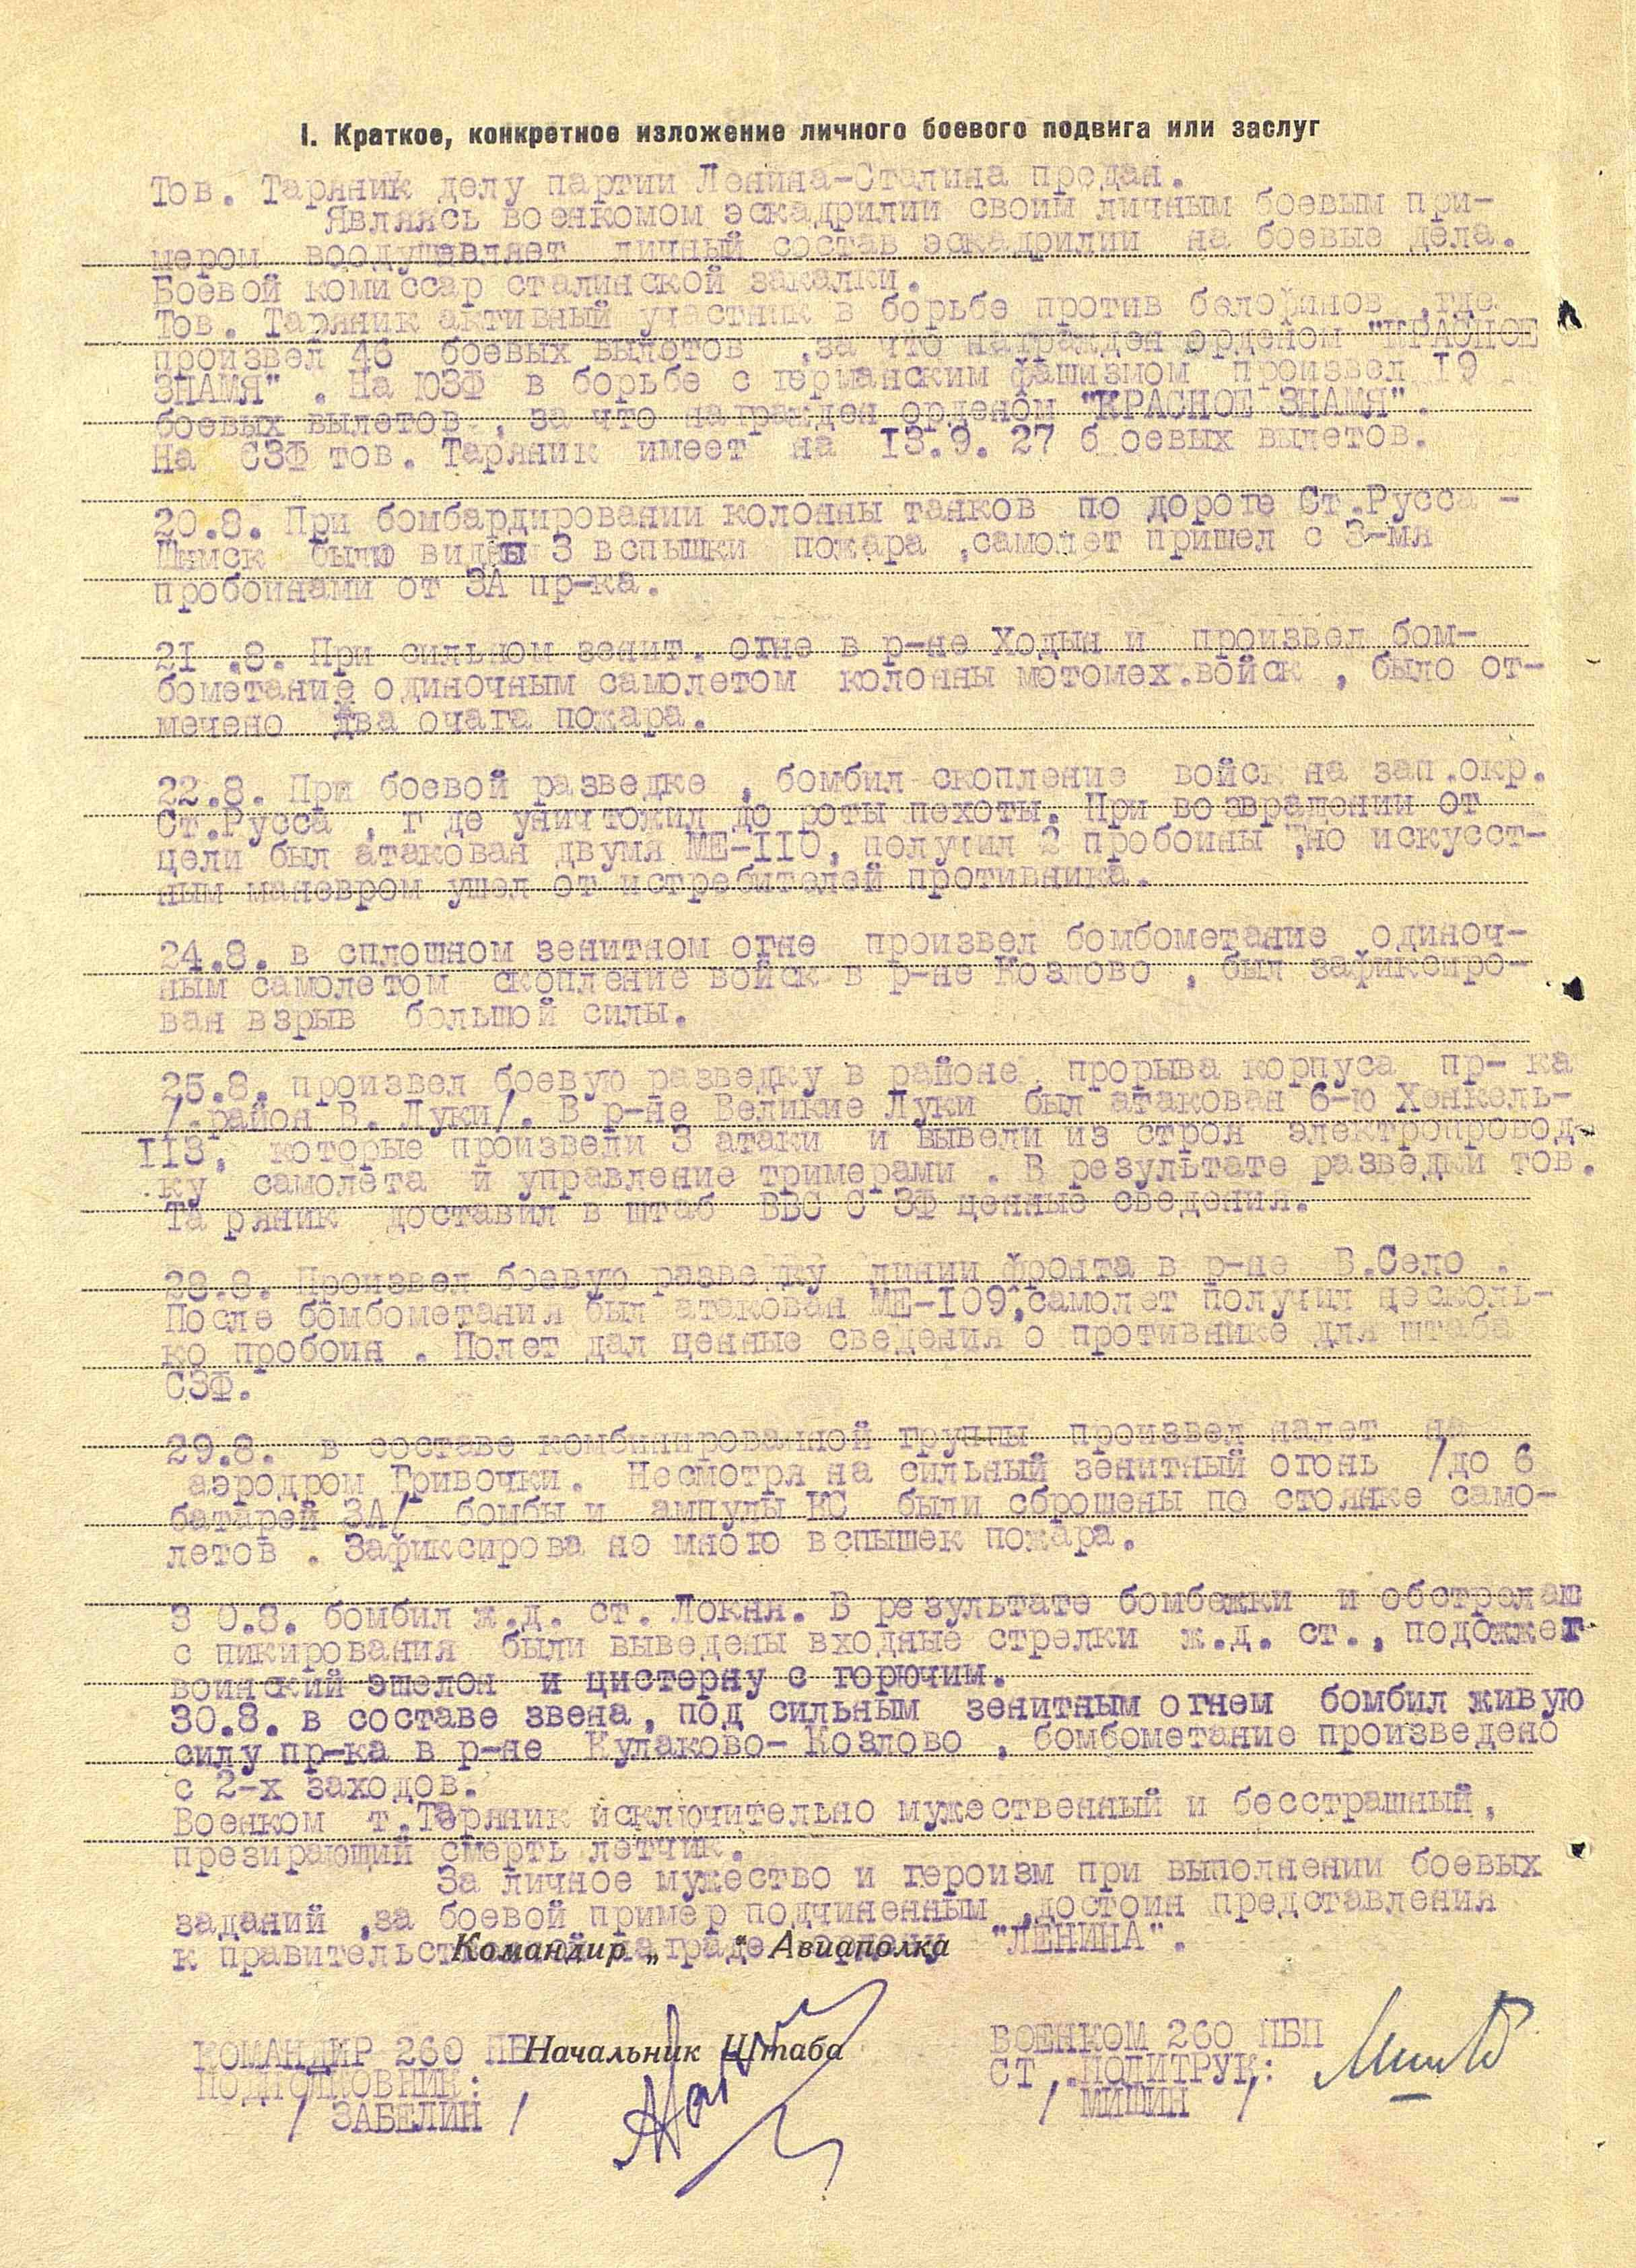 I. Краткое, конкретное изложение личного боевого подвига или заслуг
Тов. Таряник делу партии Ленина-Сталина предан.
Являясь военкомом эскадрилии своим личным боевым при-
мером воодушевляет личный состав эскадрилии на боевые дела.
Боевой комиссар сталинской закалки.
Тов. Таряник активный участник в борьбе против белофинов ,где
произвел 46 боевых вылетов ,за что награжден орденом "КРАСНОЕ
ЗНАМЯ" . На ЮЗФ в борьбе с германским фашизмом произвел I9
боевых вылетов , за что награжден орденом "КРАСНОЕ ЗНАМЯ".
На СЗФ тов. Таряник имеет на I3.9. 27 б оевых вылетов.
20.8. При бомбардировании колонны танков по дороге Ст.Русса -
Шимск было видны 3 вспышки пожара ,самолет пришел с 3-мя
пробоинами от ЗА пр-ка.
2I .8. При сильном зенит. огне в р-не Ходын и произвел бом-
бометание одиночным самолетом колонны мотомех.войск , было от-
мечено два очага пожара.
22.8. При боевой разведке , бомбил скопление войск на зап.окр.
Ст.Русса , г де уничтожил до роты пехоты. При возвращении от
цели был атакован двумя МЕ-IIO, получил 2 пробоины ,но искусст-
ным маневром ушел от истребителей противника.
24.8. в сплошном зенитном огне произвел бомбометание одиноч-
ным самолетом скопление войск в р-не Козлово , был зафиксиро-
ван взрыв большой силы.
25.8. произвел боевую разведку в районе прорыва корпуса пр- ка
/ район В. Луки/. В р-не Великие Луки был атакован 6-ю Хенкель-
II3, которые произвели 3 атаки и вывели из строя электропровод-
ку самолета и управление тримерами . В результате разведки тов.
Та ряник доставил в штаб ВВС С ЗФ ценные сведения.
28.8. Произвел боевую разве ку линии фронта в р-не В.Село .
После бомбометания был атакован МЕ-IO9,самолет получил несколь-
ко пробоин . Полет дал ценные сведения о противнике для штаба
СЗФ.
29.8. в составе комбинированной группы произвел налет на
аэродром Гривочки. Несмотря на сильный зенитный огонь /до 6
батарей ЗА/ бомбы и ампулы КС были сброшены по стоянке само-
летов . Зафиксирова но мною вспышек пожара.
3 0.8. бомбил ж.д. ст. Локня. В результате бомбежки и обстрелаш
с пикирования были выведены входные стрелки ж.д. ст., подожжег
воинский эшелон и цистерну с горючим.
30.8. в составе звена, под сильным зенитным огнем бомбил живую
силу пр-ка в р-не Кулаково- Козлово , бомбометание произведено
с 2-х заходов.
Военком т.Таряник исключительно мужественный и бесстрашный,
презирающий смерть летчик.
За личное мужество и героизм при выполнении боевых
заданий ,за боевой пример подчиненным ,достоин представления
к правительственной награде ордену "ЛЕНИНА".
Командир „ " Авиаполка
Начальник Штаба
КОМАНДИР 260 ПБП
ПОДПОЛКОВНИК:
/ ЗАБЕЛИН /
ВОЕНКОМ 260 ПБП
СТ .ПОЛИТРУК:
/ МИШИН /